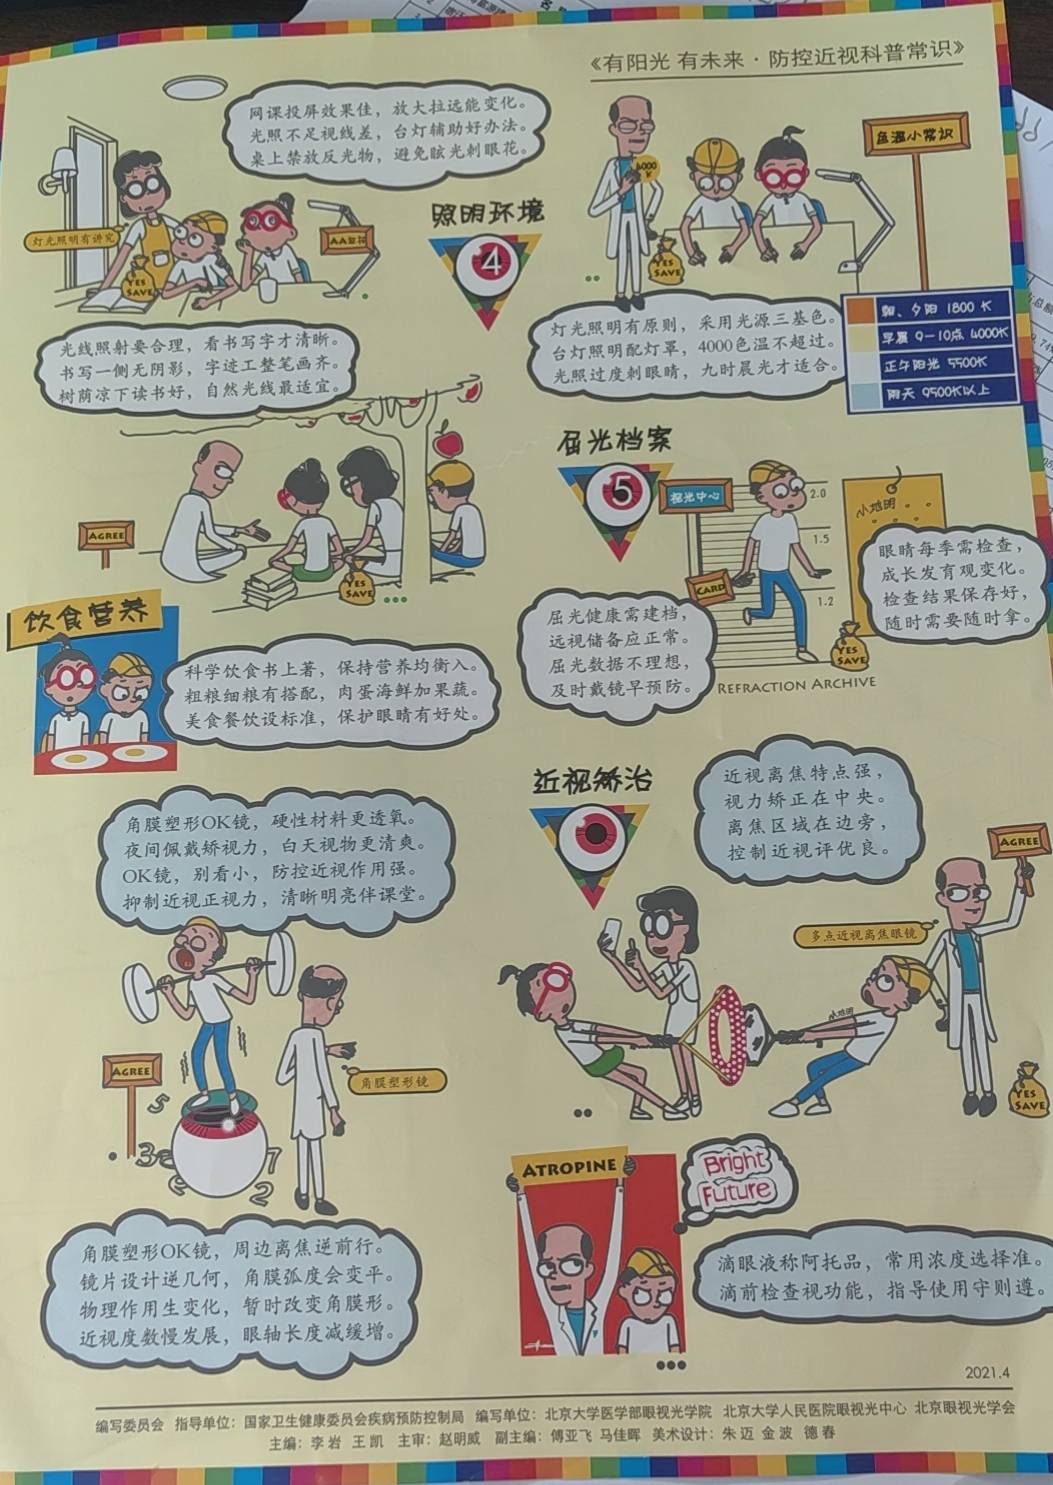 《有阳光 有未来·防控近视科普常识》
网课投屏效果佳，放大拉远能变化。
光照不足视线差，台灯辅助好办法。
桌上禁放反光物，避免眩光刺眼花。
照明环境
4
灯光照明有讲究
YES
SAVE
4000
K
色温小常识
YES
SAVE
光线照射要合理，看书写字才清晰。
书写一侧无阴影，字迹工整笔画齐。
树荫凉下读书好，自然光线最适宜。
灯光照明有原则，采用光源三基色。
台灯照明配灯罩，4000色温不超过。
光照过度刺眼睛，九时晨光才适合。
朝、夕阳 1800 K
早晨 9-10点 4000K
正午阳光 5500K
雨天 9500K以上
AGREE
YES
SAVE
屈光档案
5
验光中心
2.0
1.5
1.2
小地明
CARD
眼睛每季需检查，
成长发育观变化。
检查结果保存好，
随时需要随时拿。
屈光健康需建档，
远视储备应正常。
屈光数据不理想，
及时戴镜早预防。
YES
SAVE
REFRACTION ARCHIVE
饮食营养
科学饮食书上著，保持营养均衡入。
粗粮细粮有搭配，肉蛋海鲜加果蔬。
美食餐饮设标准，保护眼睛有好处。
近视矫治
近视离焦特点强，
视力矫正在中央。
离焦区域在边旁，
控制近视评优良。
角膜塑形OK镜，硬性材料更透氧。
夜间佩戴矫视力，白天视物更清爽。
OK镜，别看小，防控近视作用强。
抑制近视正视力，清晰明亮伴课堂。
AGREE
多点近视离焦眼镜
小地明
YES
SAVE
AGREE
角膜塑形镜
5
3
7
2
ATROPINE
Bright
Future
角膜塑形OK镜，周边离焦逆前行。
镜片设计逆几何，角膜弧度会变平。
物理作用生变化，暂时改变角膜形。
近视度数慢发展，眼轴长度减缓增。
滴眼液称阿托品，常用浓度选择准。
滴前检查视功能，指导使用守则遵。
2021.4
编写委员会 指导单位：国家卫生健康委员会疾病预防控制局 编写单位：北京大学医学部眼视光学院 北京大学人民医院眼视光中心 北京眼视光学会
主编：李岩 王凯 主审：赵明威 副主编：傅亚飞 马佳晖 美术设计：朱迈 金波 德春